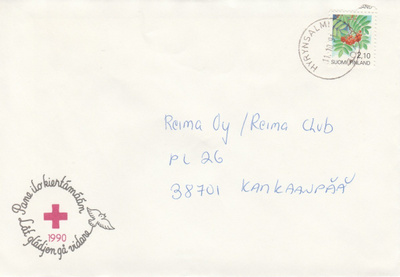 HYRYNSALMI
2,10
SUOMI FINLAND
Reima Oy / Reima Club
PL 26
38701 KANKAANPÄÄ
Pane ilo kiertämään
1990
Låt glädjen gå vidare